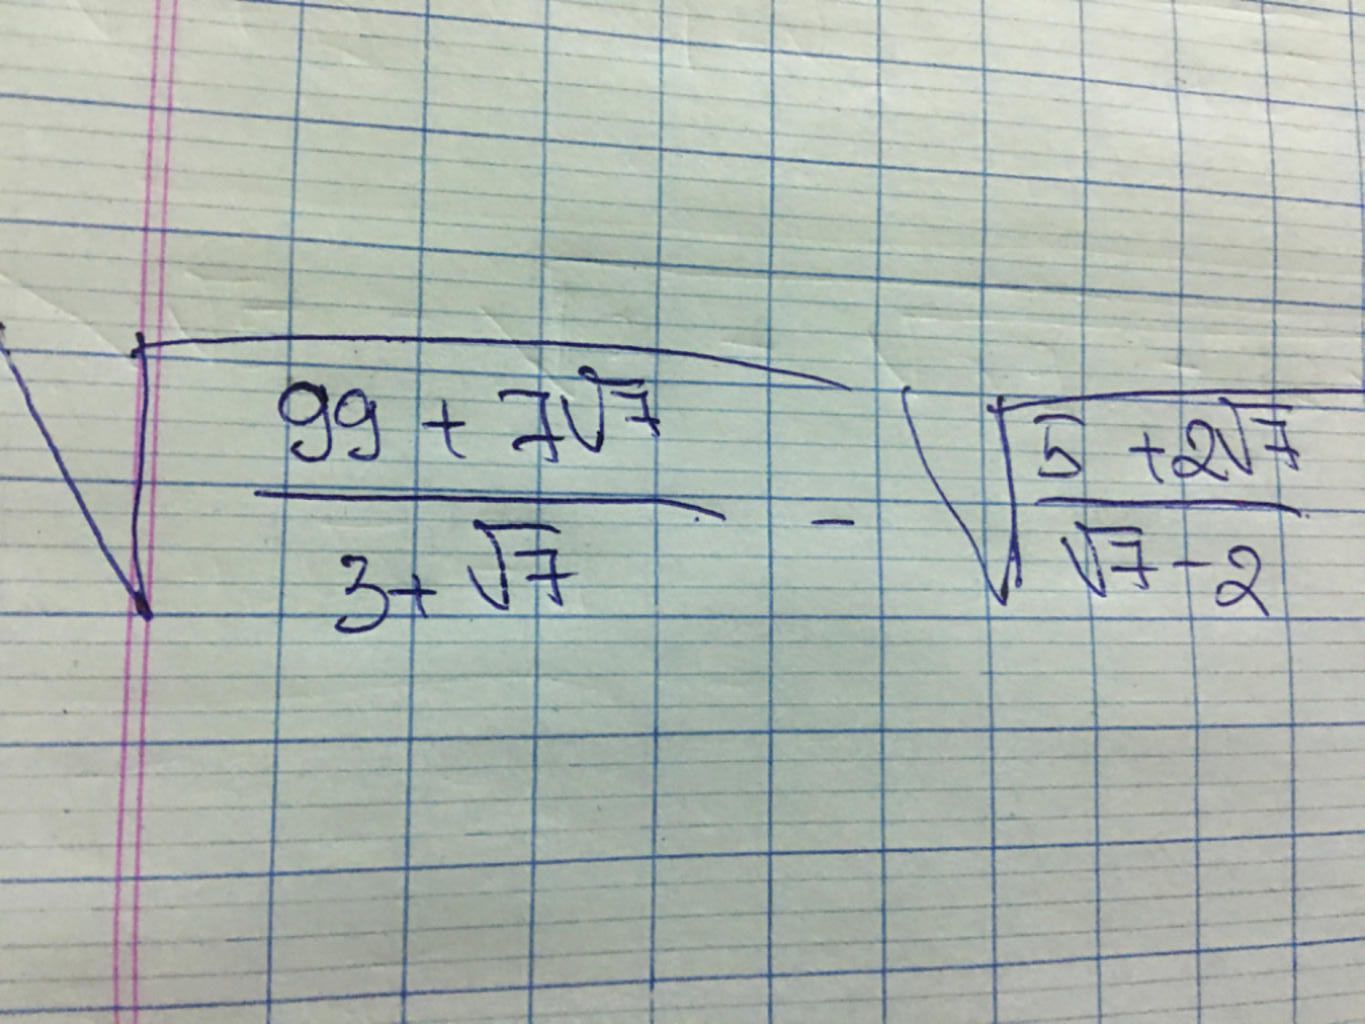 √((99 + 7√7)/(3 + √7)) - √((5 + 2√7)/(√7 - 2))